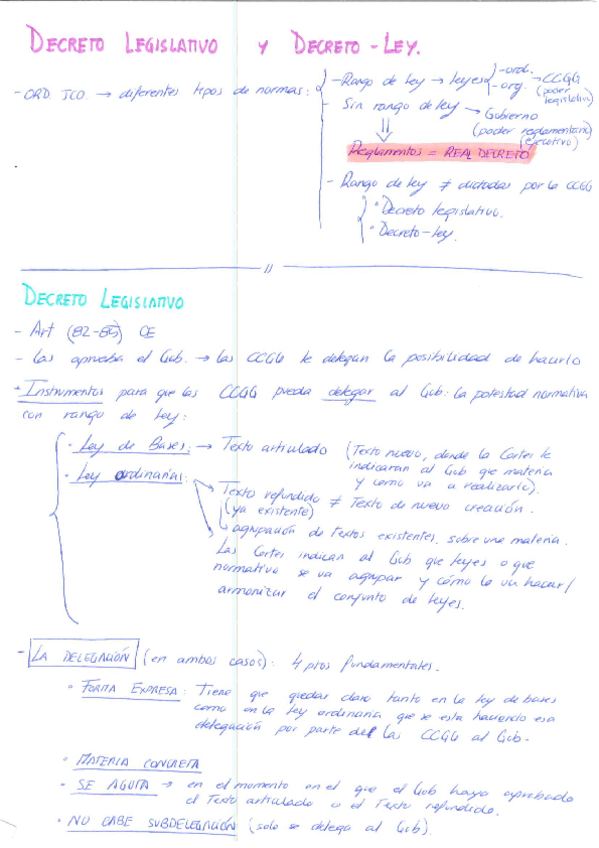 DECRETO LEGISLATIVO Y DECRETO-LEY.
- ORD. JCO. → diferentes tipos de normas:
- Rango de ley → leyes
-ord.
-org. → CCGG
(poder legislativo)
- Sin rango de ley → Gobierno
(poder reglamentario)
(ejecutivo)
Reglamentos = REAL DECRETO
- Rango de ley ≠ dictadas por la CCGG
• Decreto legislativo.
• Decreto-ley.
DECRETO LEGISLATIVO
- Art (82-85) CE
- Las aprueba el Gob. → las CCGG le delegan la posibilidad de hacerlo
- Instrumentos para que las CCGG pueda delegar al Gob: la potestad normativa
con rango de ley:
· Ley de Bases: → Texto articulado (Texto nuevo, donde la Cortes le
indicaran al Gob que materia
y como va a realizarlo).
· Ley ordinarias:
→ Texto refundido ≠ Texto de nuevo creación.
(ya existente)
↳ agrupación de textos existentes, sobre una materia.
Las Cortes indican al Gob que leyes o que
normativo se va agrupar y cómo lo va hacer/
armonizar el conjunto de leyes.
- LA DELEGACIÓN (en ambos casos): 4 ptos fundamentales.
• FORMA EXPRESA: Tiene que quedar claro tanto en la ley de bases
como en la ley ordinaria que se esta haciendo esa
delegación por parte de las CCGG al Gob.
• MATERIA CONCRETA
• SE AGOTA → en el momento en el que el Gob haya aprobado
el Texto articulado o el Texto refundido.
• NO CABE SUBDELEGACIÓN (solo se delega al Gob).